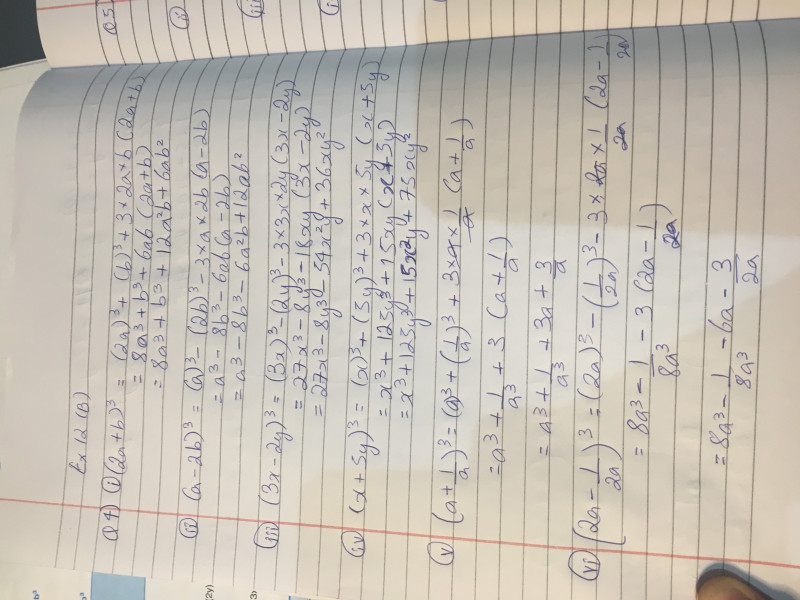 Ex 12 (B)
Q4) (i) (2a+b)³ = (2a)³ + (b)³ + 3×2a×b (2a+b)
= 8a³ + b³ + 6ab (2a+b)
= 8a³ + b³ + 12a²b + 6ab²
(ii) (a-2b)³ = (a)³ - (2b)³ - 3×a×2b (a-2b)
= a³ - 8b³ - 6ab (a-2b)
= a³ - 8b³ - 6a²b + 12ab²
(iii) (3x-2y)³ = (3x)³ - (2y)³ - 3×3x×2y (3x-2y)
= 27x³ - 8y³ - 18xy (3x-2y)
= 27x³ - 8y³ - 54x²y + 36xy²
(iv) (x+5y)³ = (x)³ + (5y)³ + 3×x×5y (x+5y)
= x³ + 125y³ + 15xy (x+5y)
= x³ + 125y³ + 15x²y + 75xy²
(v) (a+1/a)³ = (a)³ + (1/a)³ + 3×a×1/a (a+1/a)
= a³ + 1/a³ + 3 (a+1/a)
= a³ + 1/a³ + 3a + 3/a
(vi) (2a-1/2a)³ = (2a)³ - (1/2a)³ - 3×2a×1/2a (2a-1/2a)
= 8a³ - 1/8a³ - 3 (2a-1/2a)
= 8a³ - 1/8a³ - 6a - 3/2a
Q5)
(i)